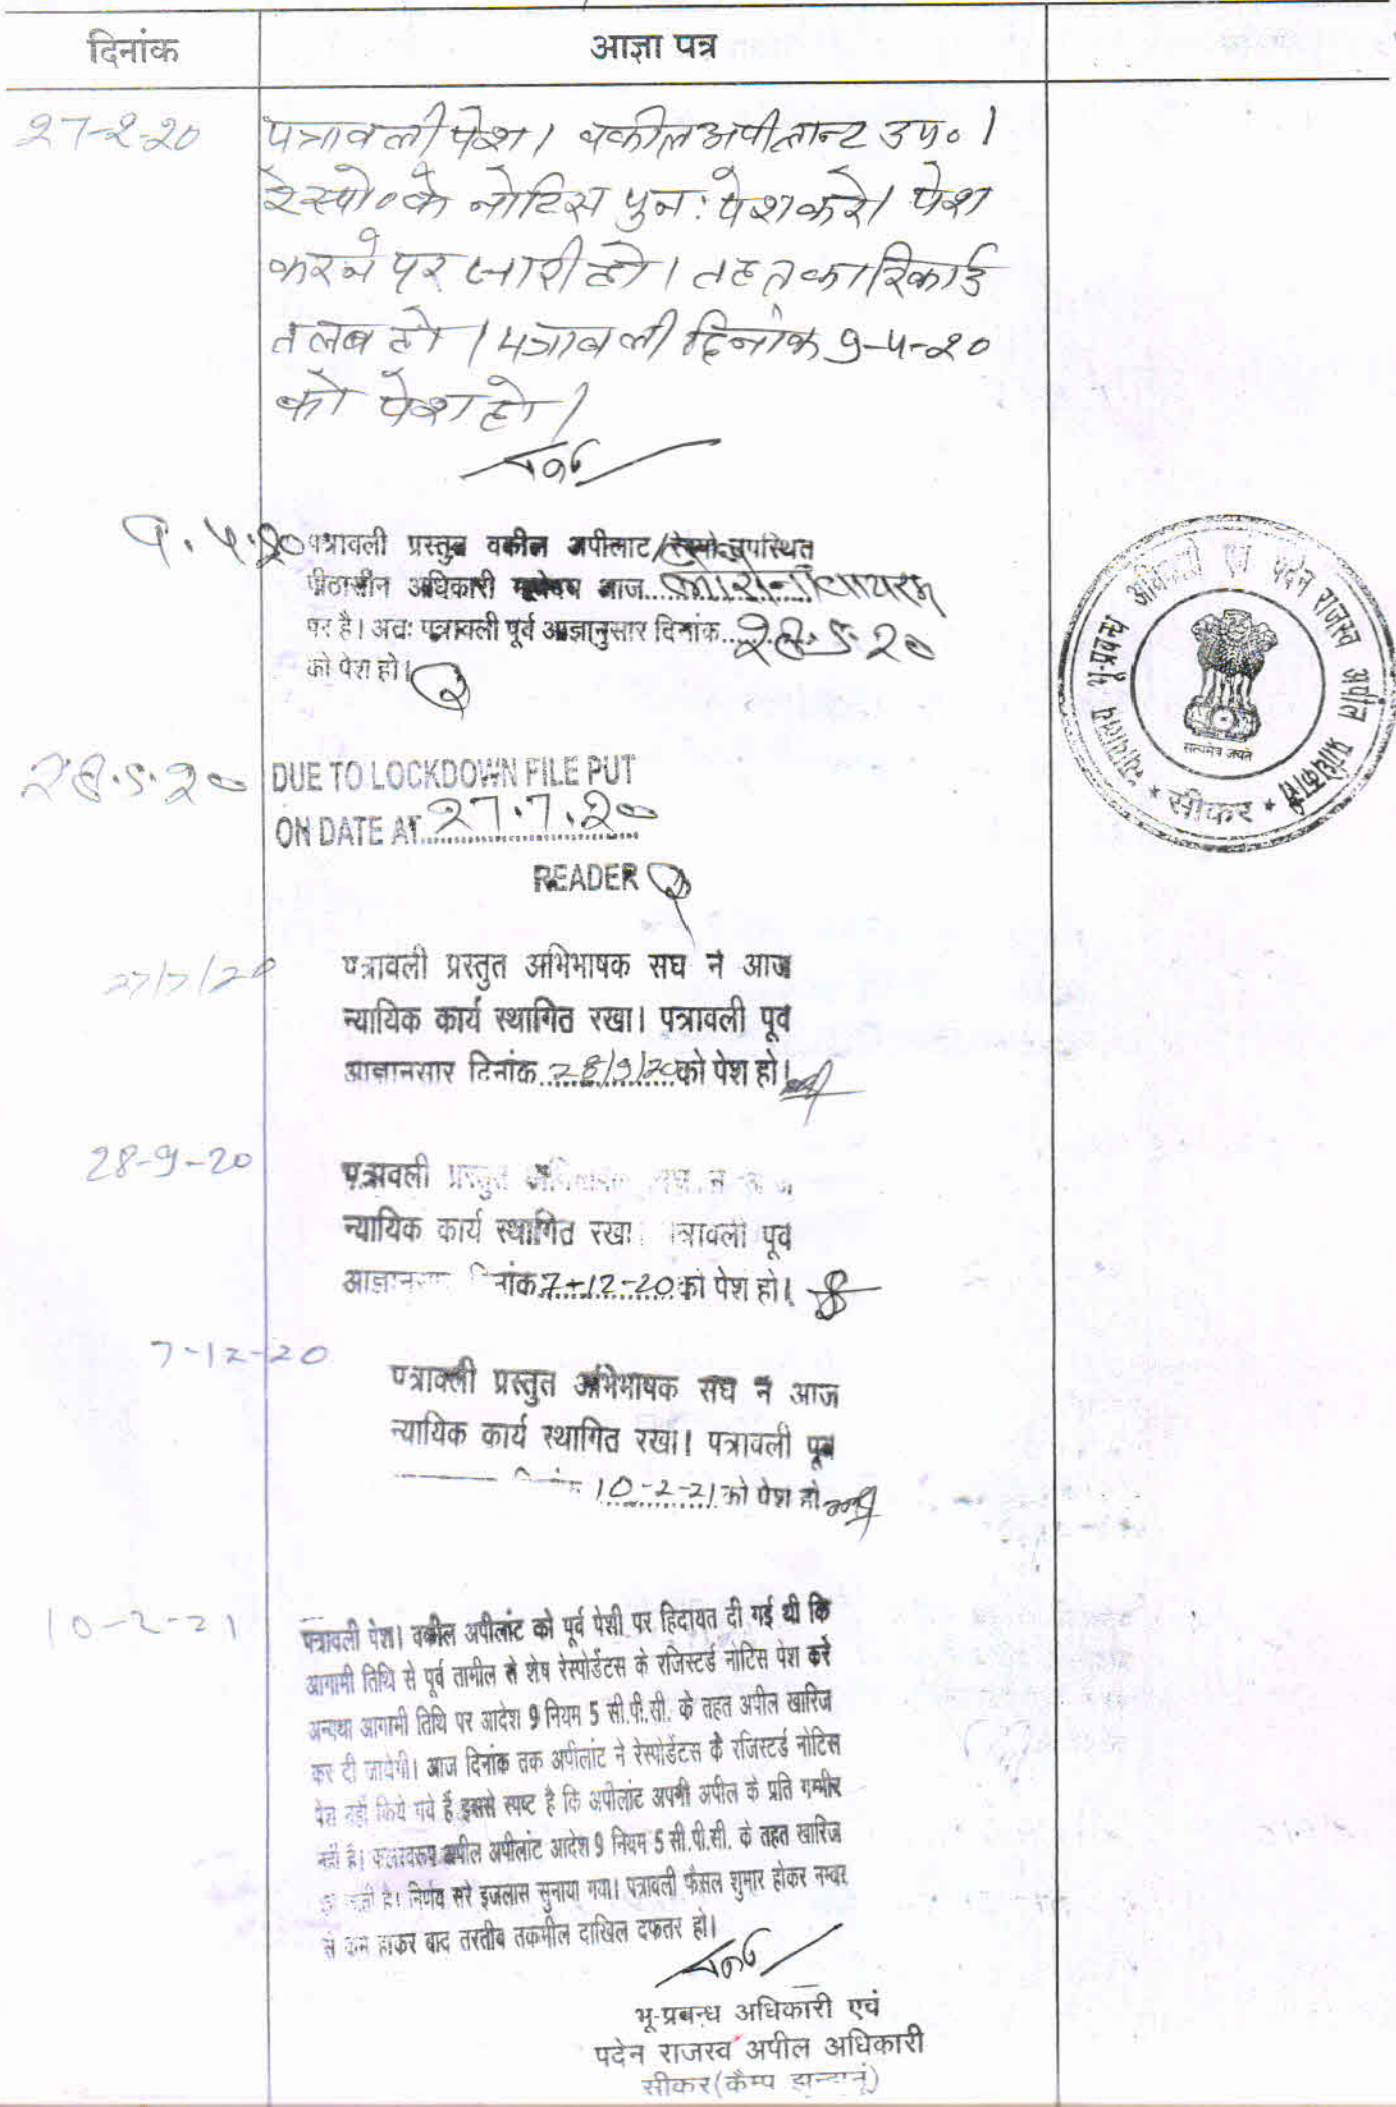 दिनांक
आज्ञा पत्र
27-2-20
पत्रावली पेश। वकील अपीलान्ट उप०।
रेस्पो० के नोटिस पुनः पेश करे। पेश
करने पर जारी हो। तहत का रिकार्ड
तलब हो। पत्रावली दिनांक 9-4-20
को पेश हो।
9.4.20
पत्रावली प्रस्तुत वकील अपीलाट/रेस्पो उपस्थित
पीठासीन अधिकारी आज
पर है। अतः पत्रावली पूर्व आज्ञानुसार दिनांक 28.5.20
को पेश हो।
28.5.20
DUE TO LOCKDOWN FILE PUT
ON DATE AT 27.7.20
READER
27/7/20
पत्रावली प्रस्तुत अभिभाषक सघ न आज
न्यायिक कार्य स्थागित रखा। पत्रावली पूव
आज्ञानसार दिनांक 28/9/20 को पेश हो।
28-9-20
पत्रावली प्रस्तुत सघ न
न्यायिक कार्य स्थागित रखा पूव
7-12-20 को पेश हो।
7-12-20
पत्रावली प्रस्तुत अभिभाषक सघ न आज
न्यायिक कार्य स्थागित रखा। पत्रावली पूव
10-2-21 को पेश हो
10-2-21
पत्रावली पेश। वकील अपीलांट को पूर्व पेशी पर हिदायत दी गई थी कि
आगामी तिथि से पूर्व तामील से शेष रेस्पोडेंटस के रजिस्टर्ड नोटिस पेश करे
अन्यथा आगामी तिथि पर आदेश 9 नियम 5 सी.पी.सी. के तहत अपील खारिज
कर दी जायेगी। आज दिनांक तक अपीलांट ने रेस्पोडेंटस के रजिस्टर्ड नोटिस
पेश नहीं किये गये हैं इससे स्पष्ट है कि अपीलांट अपनी अपील के प्रति गम्भीर
नहीं है। फलस्वरूप अपील अपीलांट आदेश 9 नियम 5 सी.पी.सी. के तहत खारिज
है। निर्णय सरे इजलास सुनाया गया। पत्रावली फैसल शुमार होकर नम्बर
से कम होकर बाद तरतीब तकमील दाखिल दफतर हो।
भू-प्रबन्ध अधिकारी एवं
पदेन राजस्व अपील अधिकारी
सीकर (कैम्प झुन्झुनूं)
न्यायालय भू-प्रबन्ध अधिकारी एवं पदेन राजस्व अपील प्राधिकारी
सत्यमेव जयते
* सीकर *